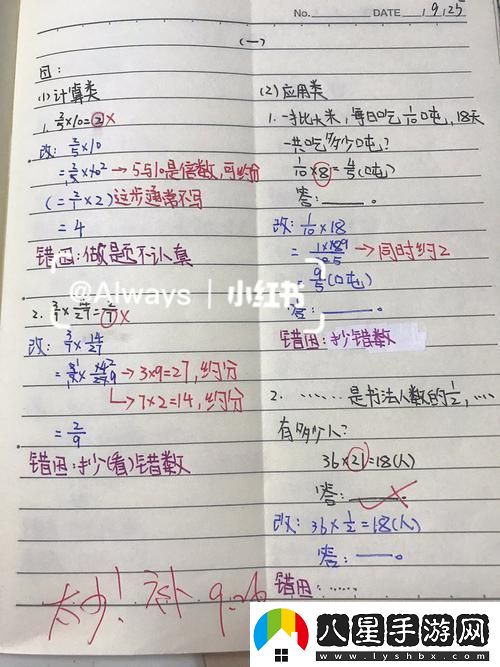 No.
DATE 9.25
(一)
因：
(1)计算类
1. 2/5×10=2×
改：2/5×10
=2/5×10² → 5与10是倍数,可约分
(=2/1×2)这步通常不写
=4
错因：做题不认真
@Always | 小红书
改：3/7×14/27
→ 3×9=27,约分
→ 7×2=14,约分
=2/9
错因：抄(看)错数
(2)应用类
1. 一批大米,每日吃1/10吨,18天
一共吃多少吨?
1/10×8=4/5(吨)
答：——。
改：1/10×18
→ 同时约2
9/5(吨)
答：——。
错因：抄错数
2. ……是书法人数的1/2,……
有多少人?
36×21=18(人)
答：
改：36×1/2=18(人)
答：——。
错因：……
太少!补 9.26
八星手游网
www.lyshbx.com